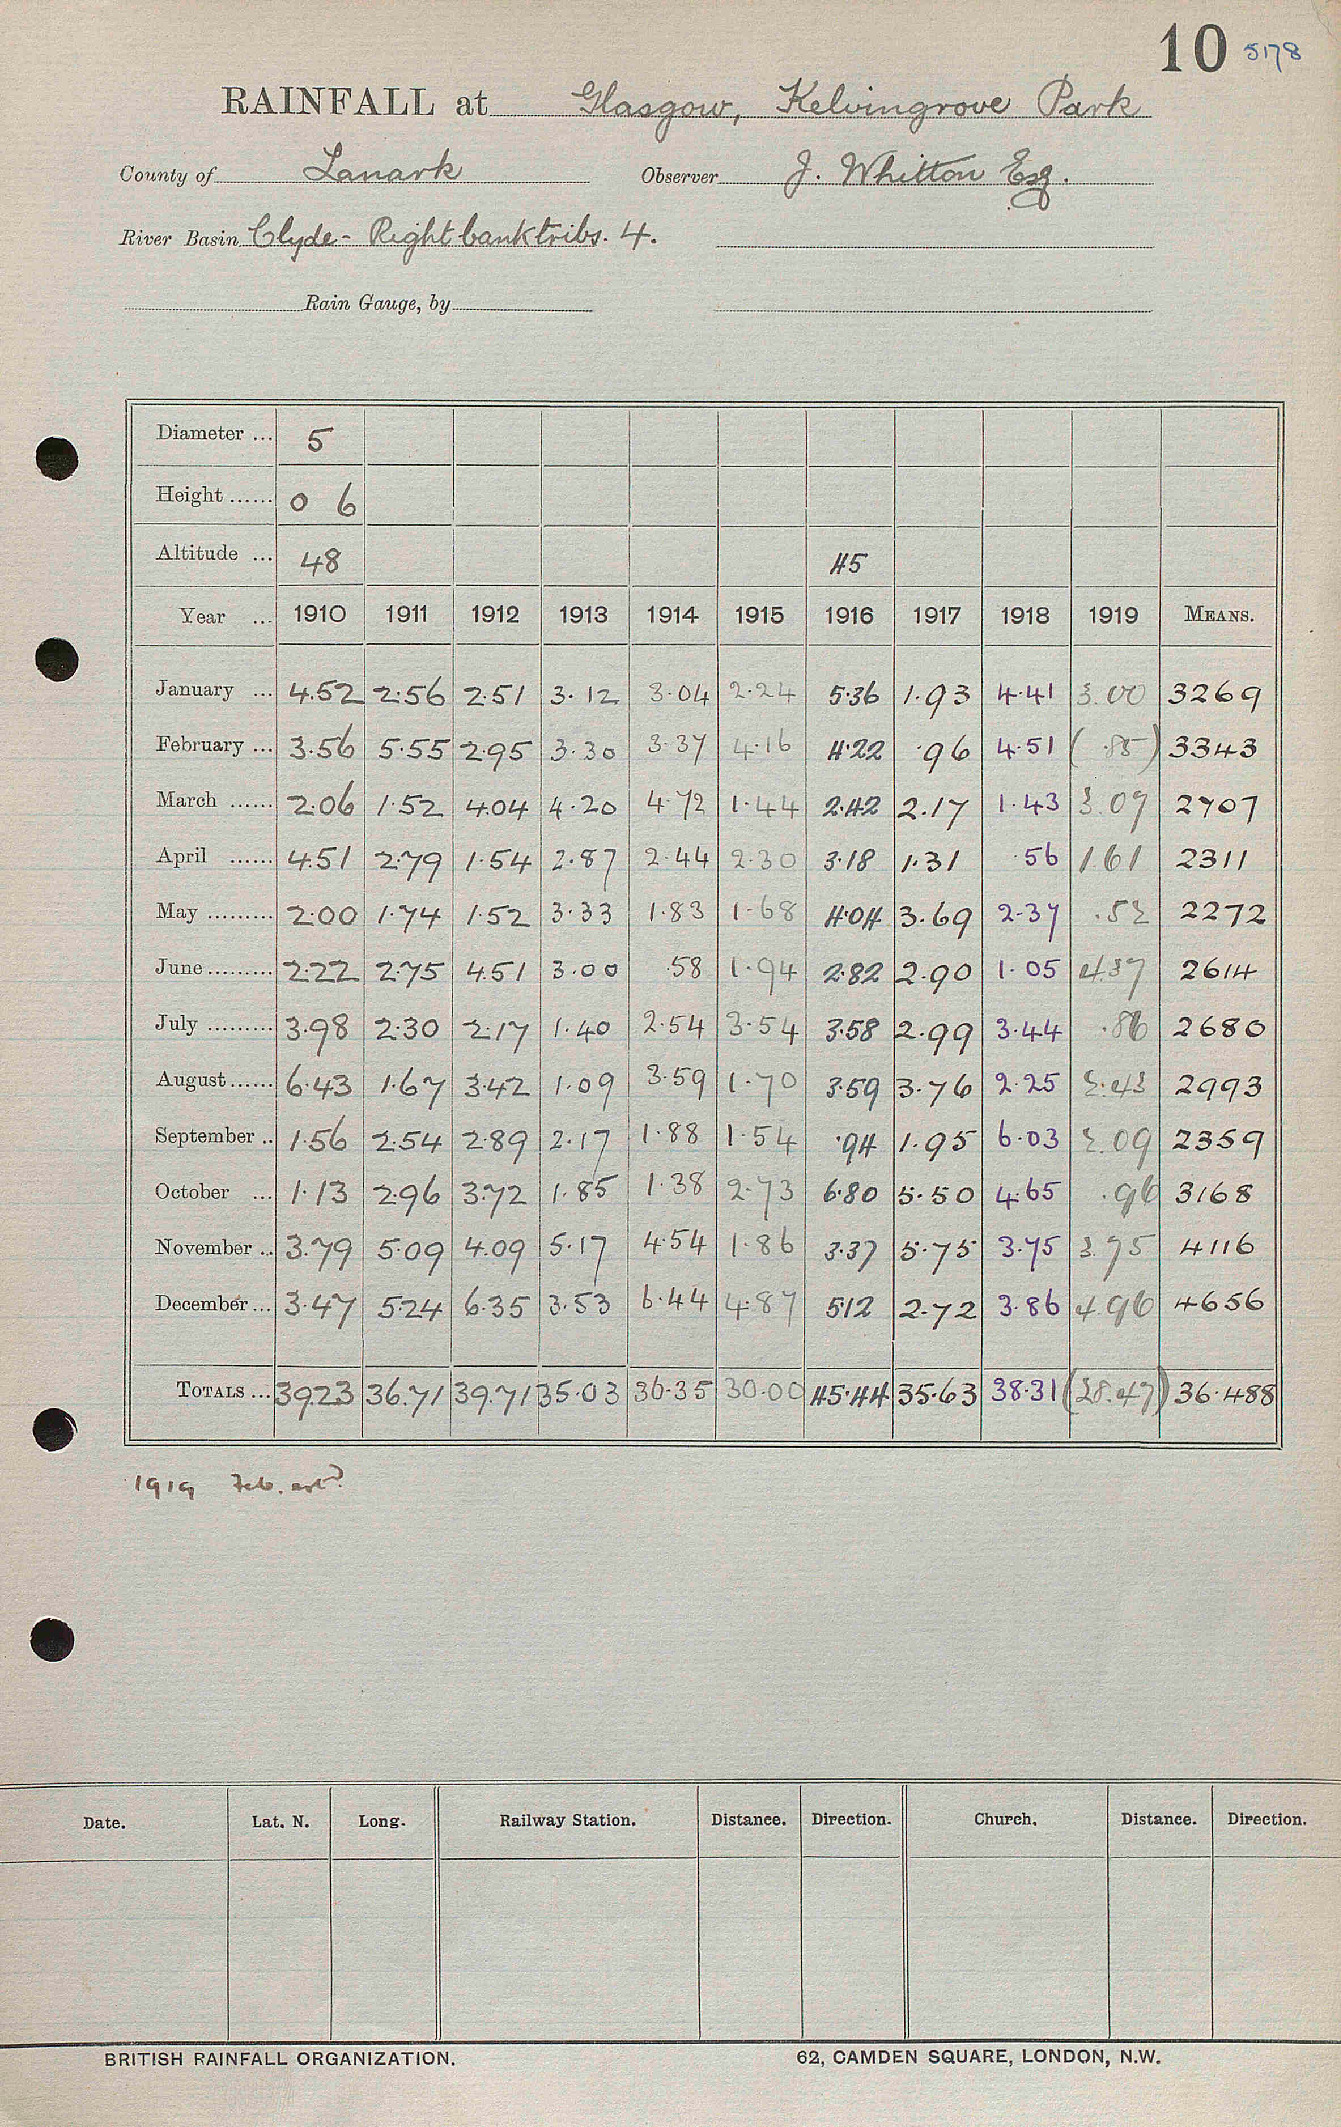 10 5178
RAINFALL at Glasgow, Kelvingrove Park
County of Lanark Observer J. Whitton Esq.
River Basin Clyde - Right bank tribs. 4.
Rain Gauge, by
Diameter ... 5
Height ...... 0 6
Altitude ... 48 45
Year ... 1910 1911 1912 1913 1914 1915 1916 1917 1918 1919 MEANS.
January ... 4.52 2.56 2.51 3.12 3.04 2.24 5.36 1.93 4.41 3.00 3269
February ... 3.56 5.55 2.95 3.30 3.37 4.16 4.22 .96 4.51 (.85) 3343
March ...... 2.06 1.52 4.04 4.20 4.72 1.44 2.42 2.17 1.43 3.07 2707
April ...... 4.51 2.79 1.54 2.87 2.44 2.30 3.18 1.31 .56 1.61 2311
May ......... 2.00 1.74 1.52 3.33 1.83 1.68 4.04 3.69 2.37 .52 2272
June ......... 2.22 2.75 4.51 3.00 .58 1.94 2.82 2.90 1.05 4.37 2614
July ......... 3.98 2.30 2.17 1.40 2.54 3.54 3.58 2.99 3.44 .86 2680
August ...... 6.43 1.67 3.42 1.09 3.59 1.70 3.59 3.76 2.25 2.43 2993
September .. 1.56 2.54 2.89 2.17 1.88 1.54 .94 1.95 6.03 2.09 2359
October ... 1.13 2.96 3.72 1.85 1.38 2.73 6.80 5.50 4.65 .96 3168
November .. 3.79 5.09 4.09 5.17 4.54 1.86 3.37 5.75 3.75 3.75 4116
December ... 3.47 5.24 6.35 3.53 6.44 4.87 5.12 2.72 3.86 4.96 4656
TOTALS ... 39.23 36.71 39.71 35.03 36.35 30.00 45.44 35.63 38.31 (28.47) 36.488
1919 Feb. estd.
Date. Lat. N. Long. Railway Station. Distance. Direction. Church. Distance. Direction.
BRITISH RAINFALL ORGANIZATION. 62, CAMDEN SQUARE, LONDON, N.W.